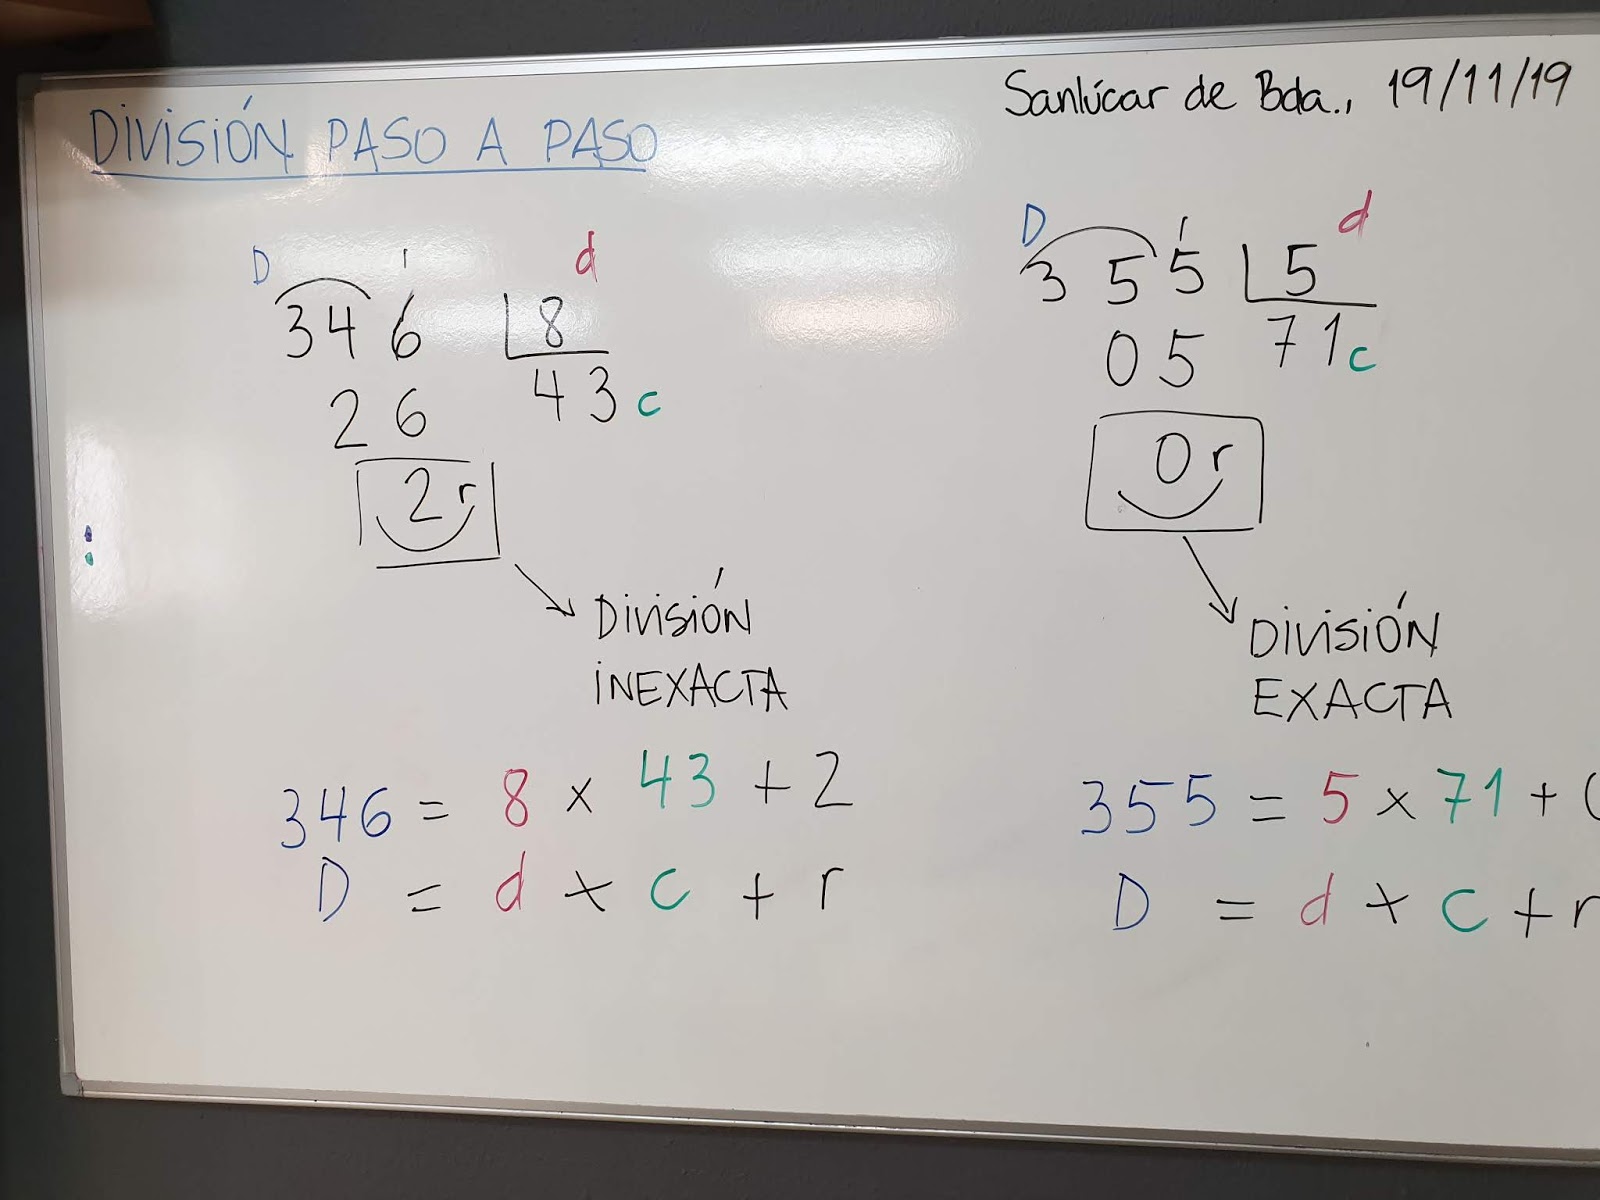 DIVISIÓN PASO A PASO
Sanlúcar de Bda., 19/11/19
D d
346 8
26 43 c
2 r
DIVISIÓN
INEXACTA
346 = 8 x 43 + 2
D = d x c + r
D d
3 5 5 5
05 71 c
0 r
DIVISIÓN
EXACTA
355 = 5 x 71 +
D = d x c + r